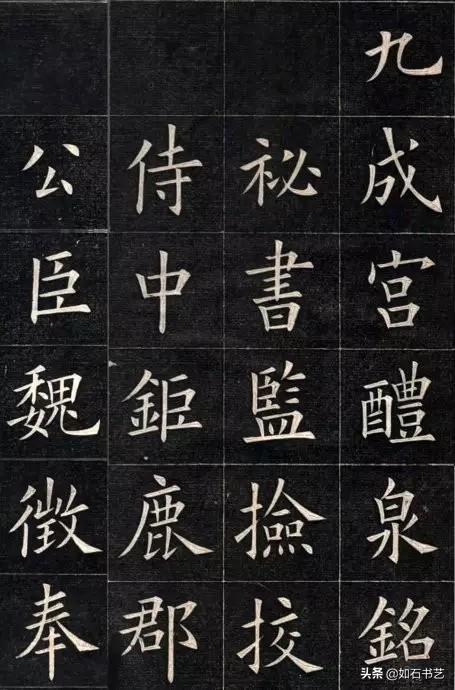 九成宮醴泉銘
祕書監撿挍
侍中鉅鹿郡
公臣魏徵奉
头条 @如石书艺